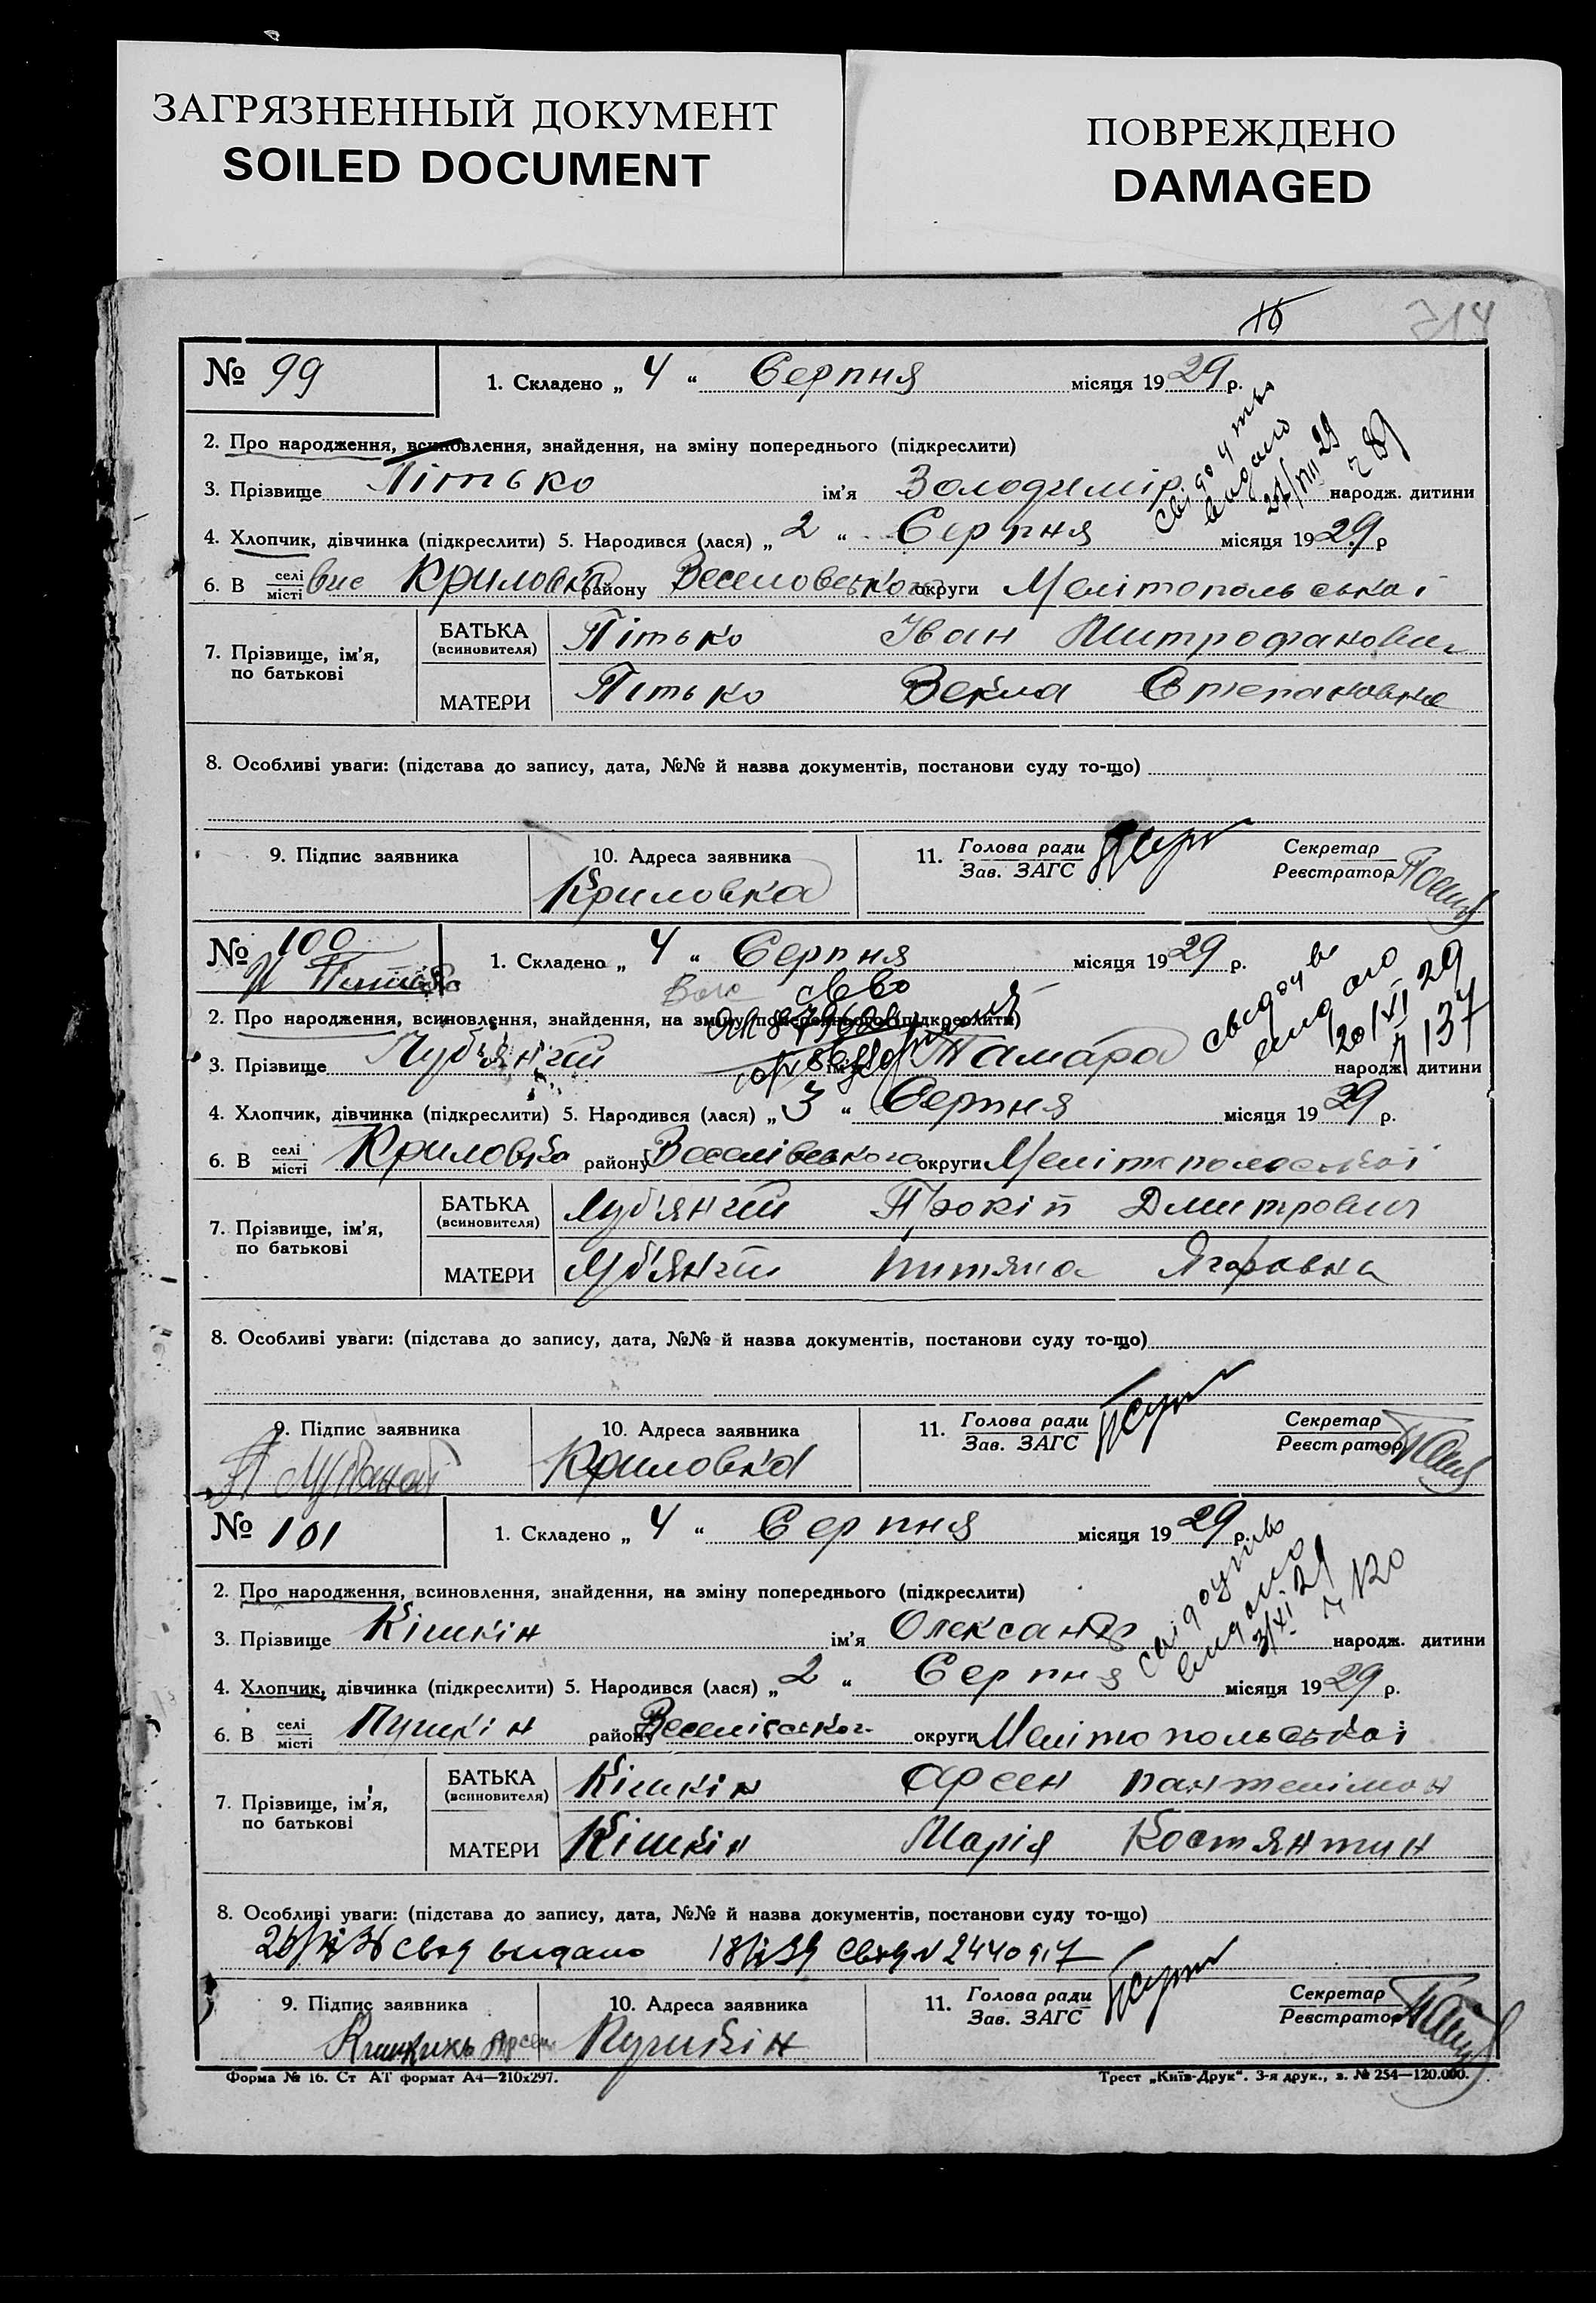 ЗАГРЯЗНЕННЫЙ ДОКУМЕНТ
SOILED DOCUMENT
ПОВРЕЖДЕНО
DAMAGED
314
№ 99
1. Складено „ 4 “ Серпня місяця 1929 р.
2. Про народження, всиновлення, знайдення, на зміну попереднього (підкреслити)
3. Прізвище Пітько ім'я Володимір народж. дитини
4. Хлопчик, дівчинка (підкреслити) 5. Народився (лася) „ 2 “ Серпня місяця 1929 р
6. В селі місті Криловка району Веселовського округи Мелітопольськоі
7. Прізвище, ім'я, по батькові
БАТЬКА (всиновителя) Пітько Іван Митрофанович
МАТЕРИ Пітько Векла Степановна
8. Особливі уваги: (підстава до запису, дата, №№ й назва документів, постанови суду то-що)
9. Підпис заявника
10. Адреса заявника
Криловка
11. Голова ради Зав. ЗАГС
Секретар Реєстратор
№ 100
1. Складено „ 4 “ Серпня місяця 1929 р.
свідоцтво видано 20/XI 29 137
2. Про народження, всиновлення, знайдення, на зміну попереднього (підкреслити)
3. Прізвище Луб'янгий ім'я Тамара народж. дитини
4. Хлопчик, дівчинка (підкреслити) 5. Народився (лася) „ 3 “ Серпня місяця 1929 р.
6. В селі місті Криловка району Веселівського округи Мелітопольськоі
7. Прізвище, ім'я, по батькові
БАТЬКА (всиновителя) Луб'янгий Прокіп Дмитрович
МАТЕРИ
8. Особливі уваги: (підстава до запису, дата, №№ й назва документів, постанови суду то-що)
9. Підпис заявника
10. Адреса заявника
Криловка
11. Голова ради Зав. ЗАГС
Секретар Реєстратор
№ 101
1. Складено „ 4 “ Серпня місяця 1929 р.
свідоцтво видано
2. Про народження, всиновлення, знайдення, на зміну попереднього (підкреслити)
3. Прізвище Кішкін ім'я Олександр народж. дитини
4. Хлопчик, дівчинка (підкреслити) 5. Народився (лася) „ 2 “ Серпня місяця 1929 р.
6. В селі місті Пушкін району Веселівського округи Мелітопольськоі
7. Прізвище, ім'я, по батькові
БАТЬКА (всиновителя) Кішкін Арсен Пантелімон
МАТЕРИ Кішкін Марія Костянтин
8. Особливі уваги: (підстава до запису, дата, №№ й назва документів, постанови суду то-що)
видано
9. Підпис заявника
10. Адреса заявника
Пушкін
11. Голова ради Зав. ЗАГС
Секретар Реєстратор
Форма № 16. Ст АТ формат А4—210x297.
Трест „Київ-Друк“. 3-я друк., з. № 254—120.000.